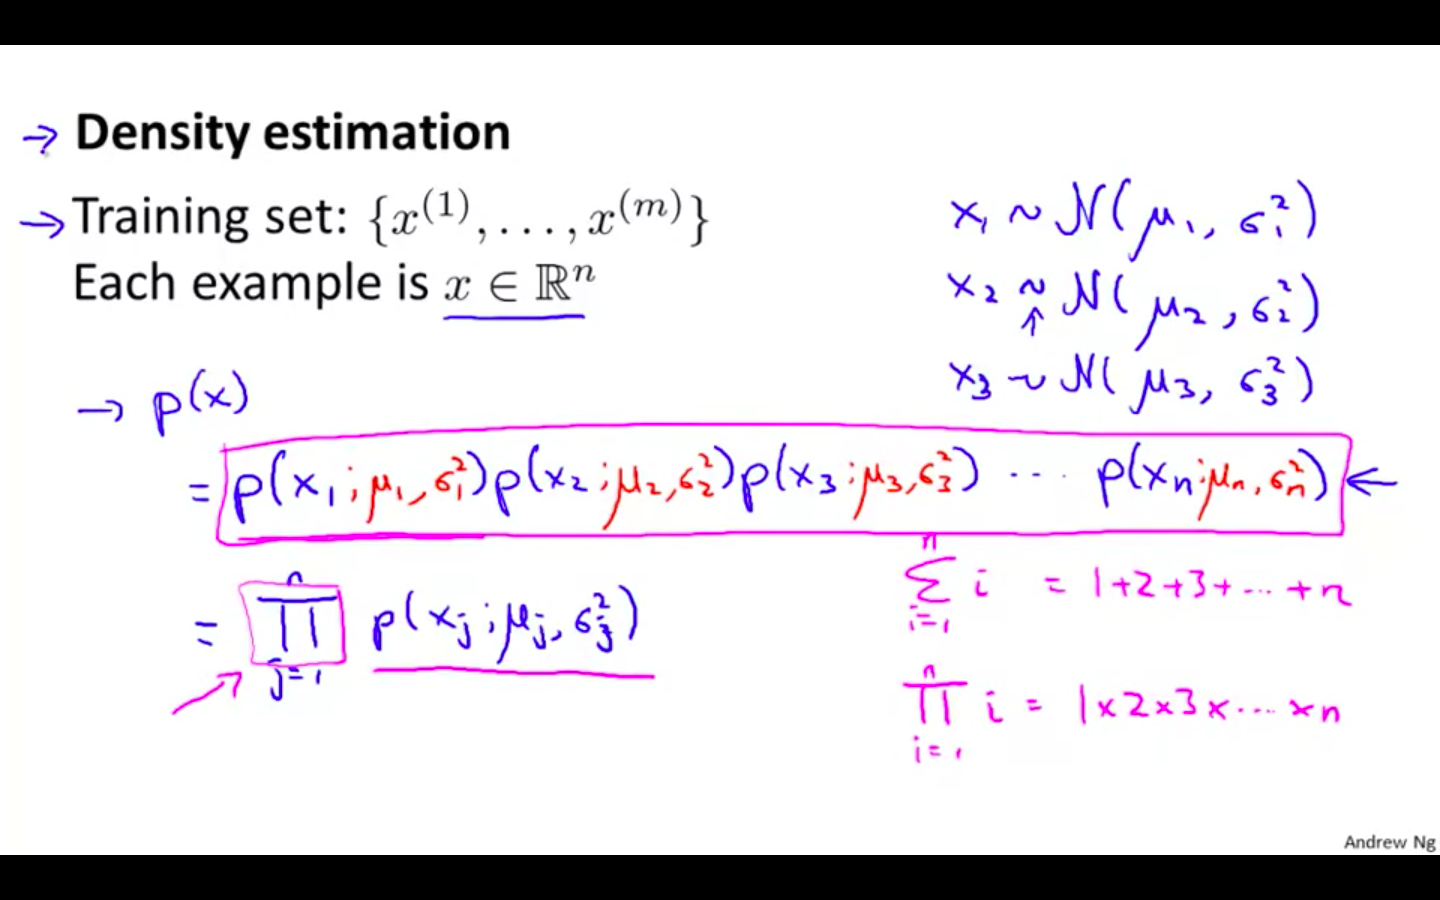 → Density estimation
→ Training set: {x^(1), ..., x^(m)}
Each example is x ∈ ℝ^n
x₁ ~ N(μ₁, σ₁²)
x₂ ~ N(μ₂, σ₂²)
↑
x₃ ~ N(μ₃, σ₃²)
→ p(x)
= p(x₁; μ₁, σ₁²) p(x₂; μ₂, σ₂²) p(x₃; μ₃, σ₃²) ... p(xₙ; μₙ, σₙ²) ←
= ∏_{j=1}^{n} p(xⱼ; μⱼ, σⱼ²)
∑_{i=1}^{n} i = 1+2+3+...+n
∏_{i=1}^{n} i = 1×2×3×...×n
Andrew Ng